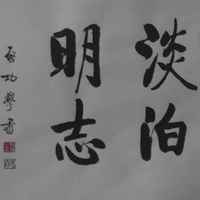 淡泊
明志
启功学书